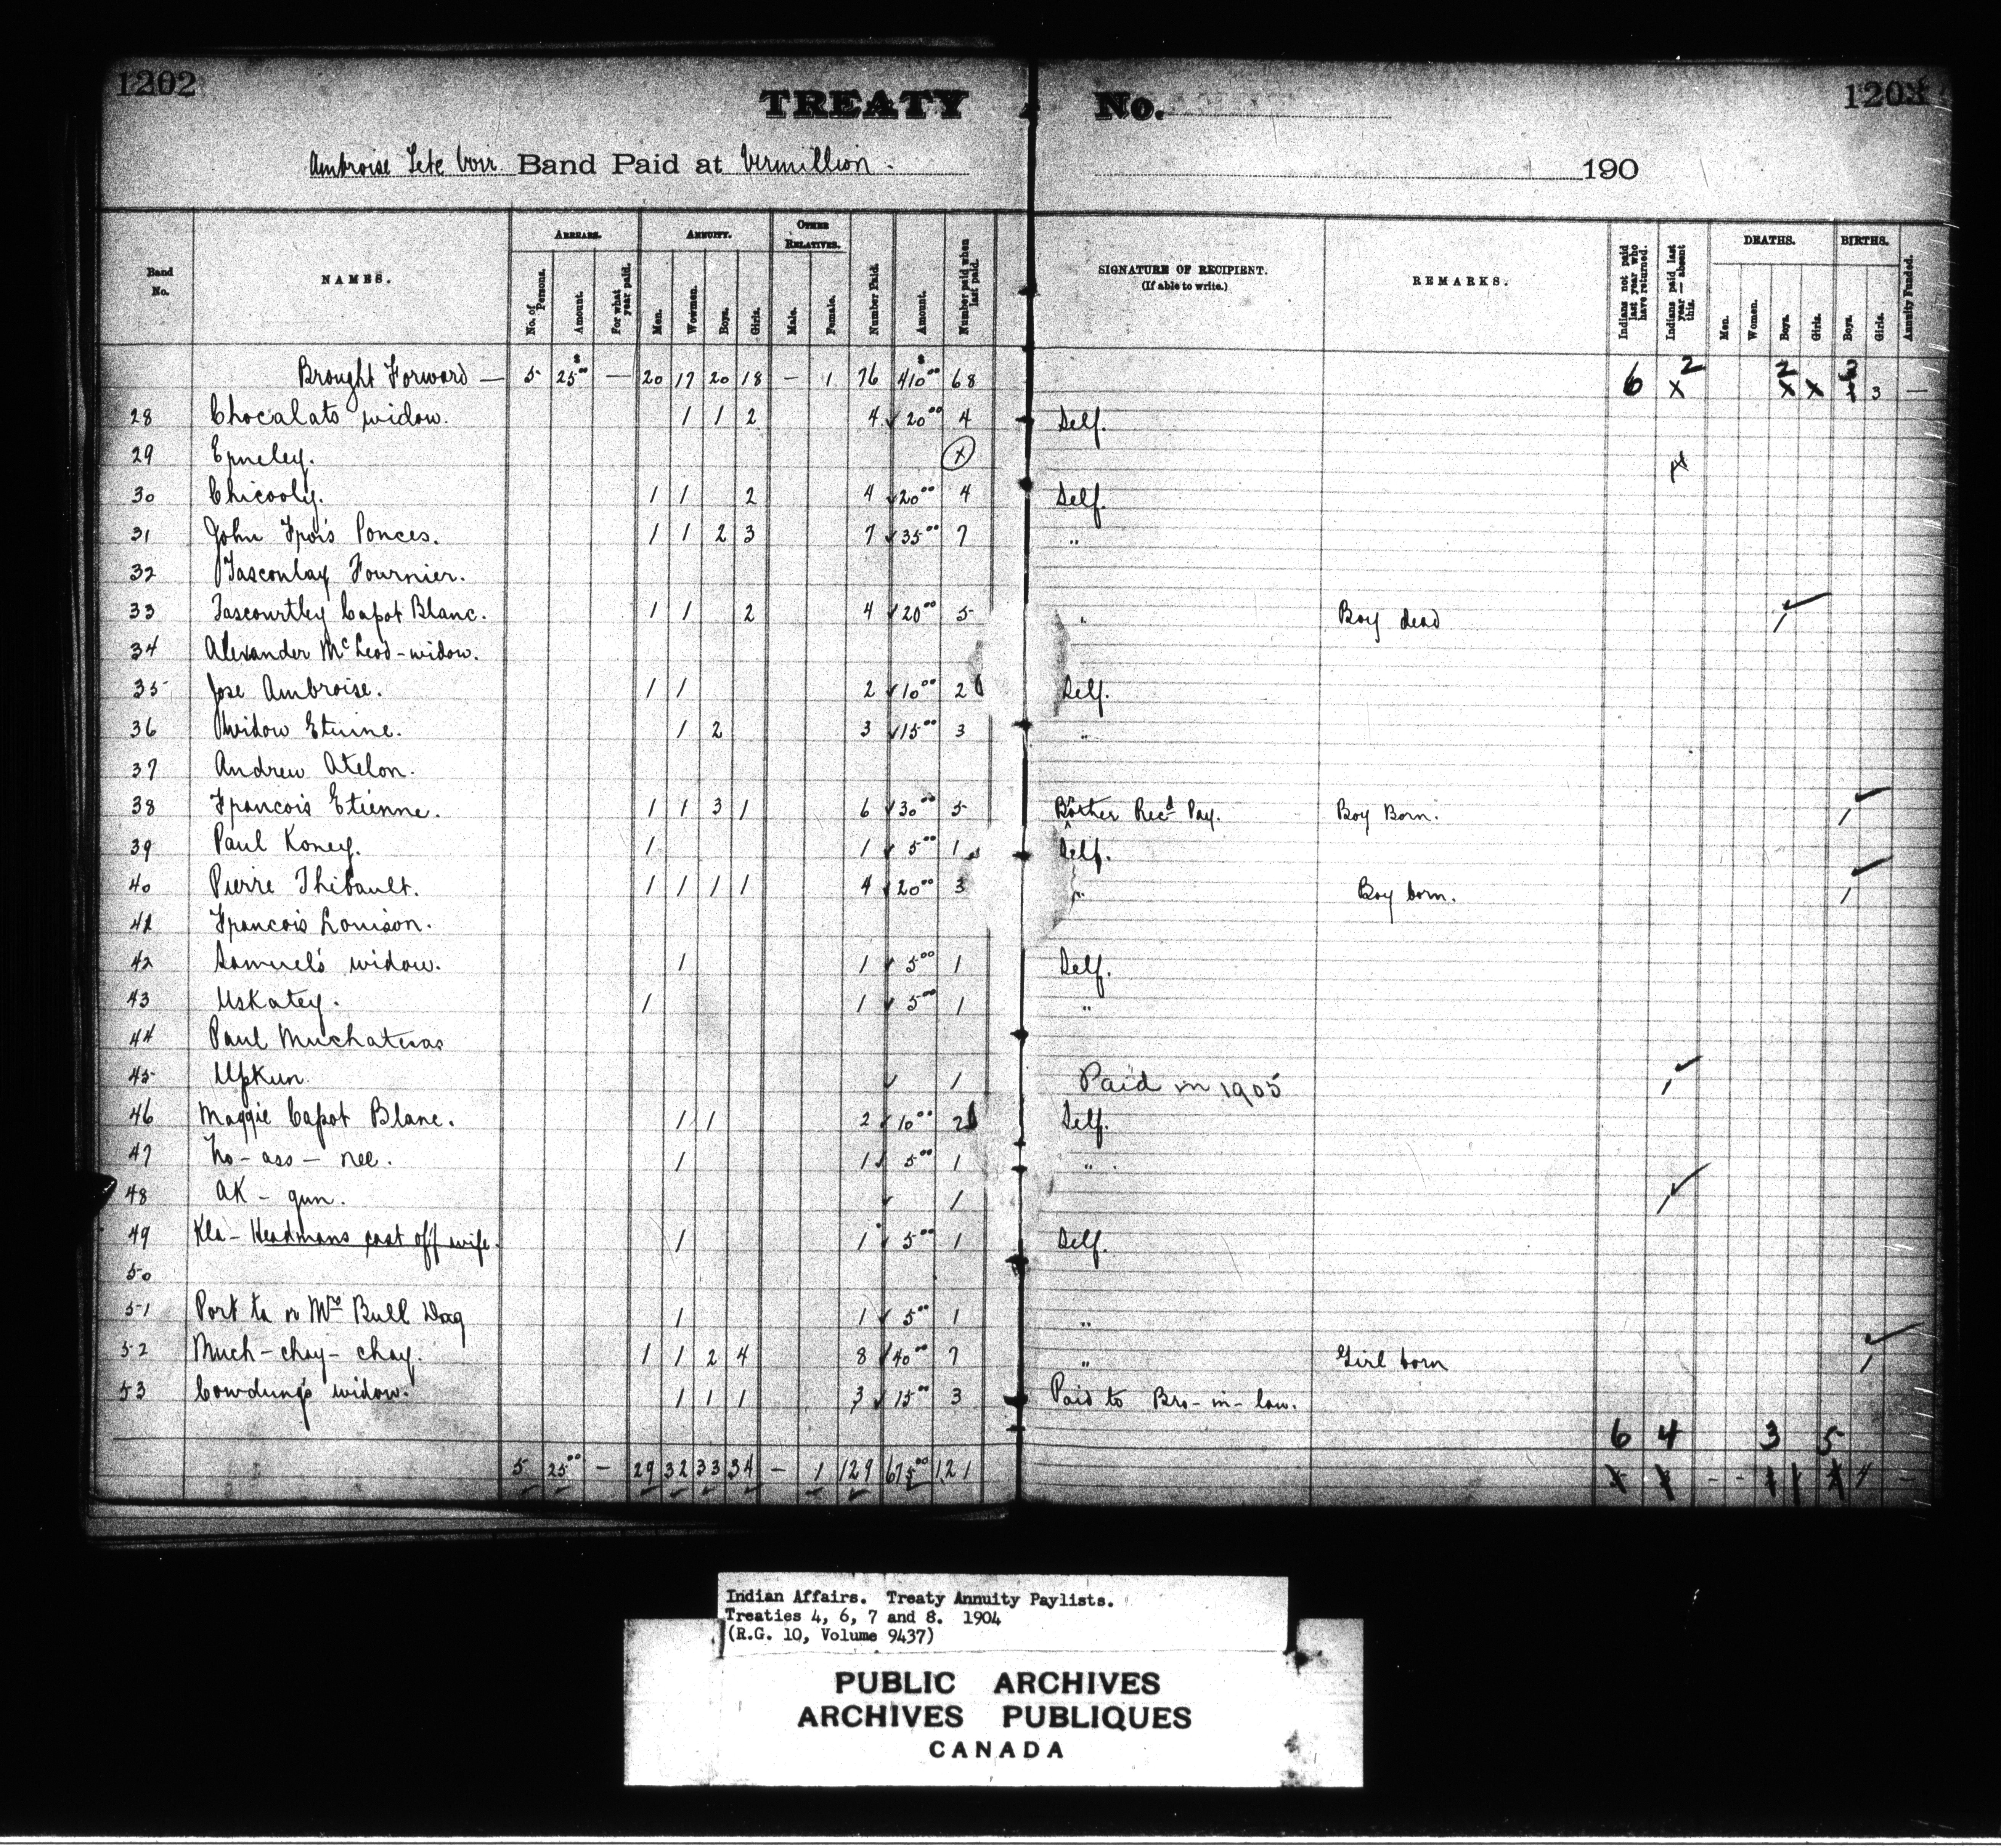 1202
1203
TREATY No.
Ambroise Tete Noir Band Paid at Vermillion. 190
Band No. NAMES. ARREARS. No. of Persons. Amount. For what year paid. ANNUITY. Men. Women. Boys. Girls. OTHER RELATIVES. Male. Female. Number Paid. Amount. Number paid when last paid. SIGNATURE OF RECIPIENT. (If able to write.) REMARKS. Indians not paid last year who have returned. Indians paid last year — absent this. DEATHS. Men. Women. Boys. Girls. BIRTHS. Boys. Girls. Annuity Funded.
Brought Forward — 5 25 00 — 20 17 20 18 — 1 76 $ 410 00 68 6 x 2 2 x x 3 —
28 Chocalato widow. 1 1 2 4 ✓ 20 00 4 Self.
29 x
30 Chicooly. 1 1 2 4 ✓ 20 00 4 Self.
31 John Fpois Ponces. 1 1 2 3 7 ✓ 35 00 7 "
32 Tasconlay Fournier.
33 Tascourtley Capot Blanc. 1 1 2 4 ✓ 20 00 5 " Boy dead 1 ✓
34 Alexander McLeod - widow.
35 Jose Ambroise. 1 1 2 ✓ 10 00 2 Self.
36 Widow Etienne. 1 2 3 ✓ 15 00 3 "
37 Andrew Atelon.
38 Francois Etienne. 1 1 3 1 6 ✓ 30 00 5 Brother Recd Pay. Boy Born. 1 ✓
39 Paul Koney. 1 1 ✓ 5 00 1 Self.
40 Pierre Thibault. 1 1 1 1 4 ✓ 20 00 3 " Boy born. 1 ✓
41 Francois Louison.
42 Samuel's widow. 1 1 ✓ 5 00 1 Self.
43 Uskatey. 1 1 ✓ 5 00 1 "
44 Paul
45 Upkun ✓ 1 Paid in 1905 1 ✓
46 Maggie Capot Blanc. 1 1 2 ✓ 10 00 2 Self.
47 No - ass - nee. 1 1 ✓ 5 00 1 "
48 AK - gun. ✓ 1 1 ✓
49 Kla - Headmans cast off wife. 1 1 ✓ 5 00 1 Self.
50
51 Port ta or Mrs Bull Dog 1 1 ✓ 5 00 1 "
52 Much - chay - chay. 1 1 2 4 8 ✓ 40 00 7 " Girl born 1 ✓
53 Cowdung's widow. 1 1 1 3 ✓ 15 00 3 Paid to Bro-in-law.
6 4 3 5
5 25 00 — 29 32 33 34 — 1 129 675 00 121
Indian Affairs. Treaty Annuity Paylists.
Treaties 4, 6, 7 and 8. 1904
(R.G. 10, Volume 9437)
PUBLIC ARCHIVES
ARCHIVES PUBLIQUES
CANADA